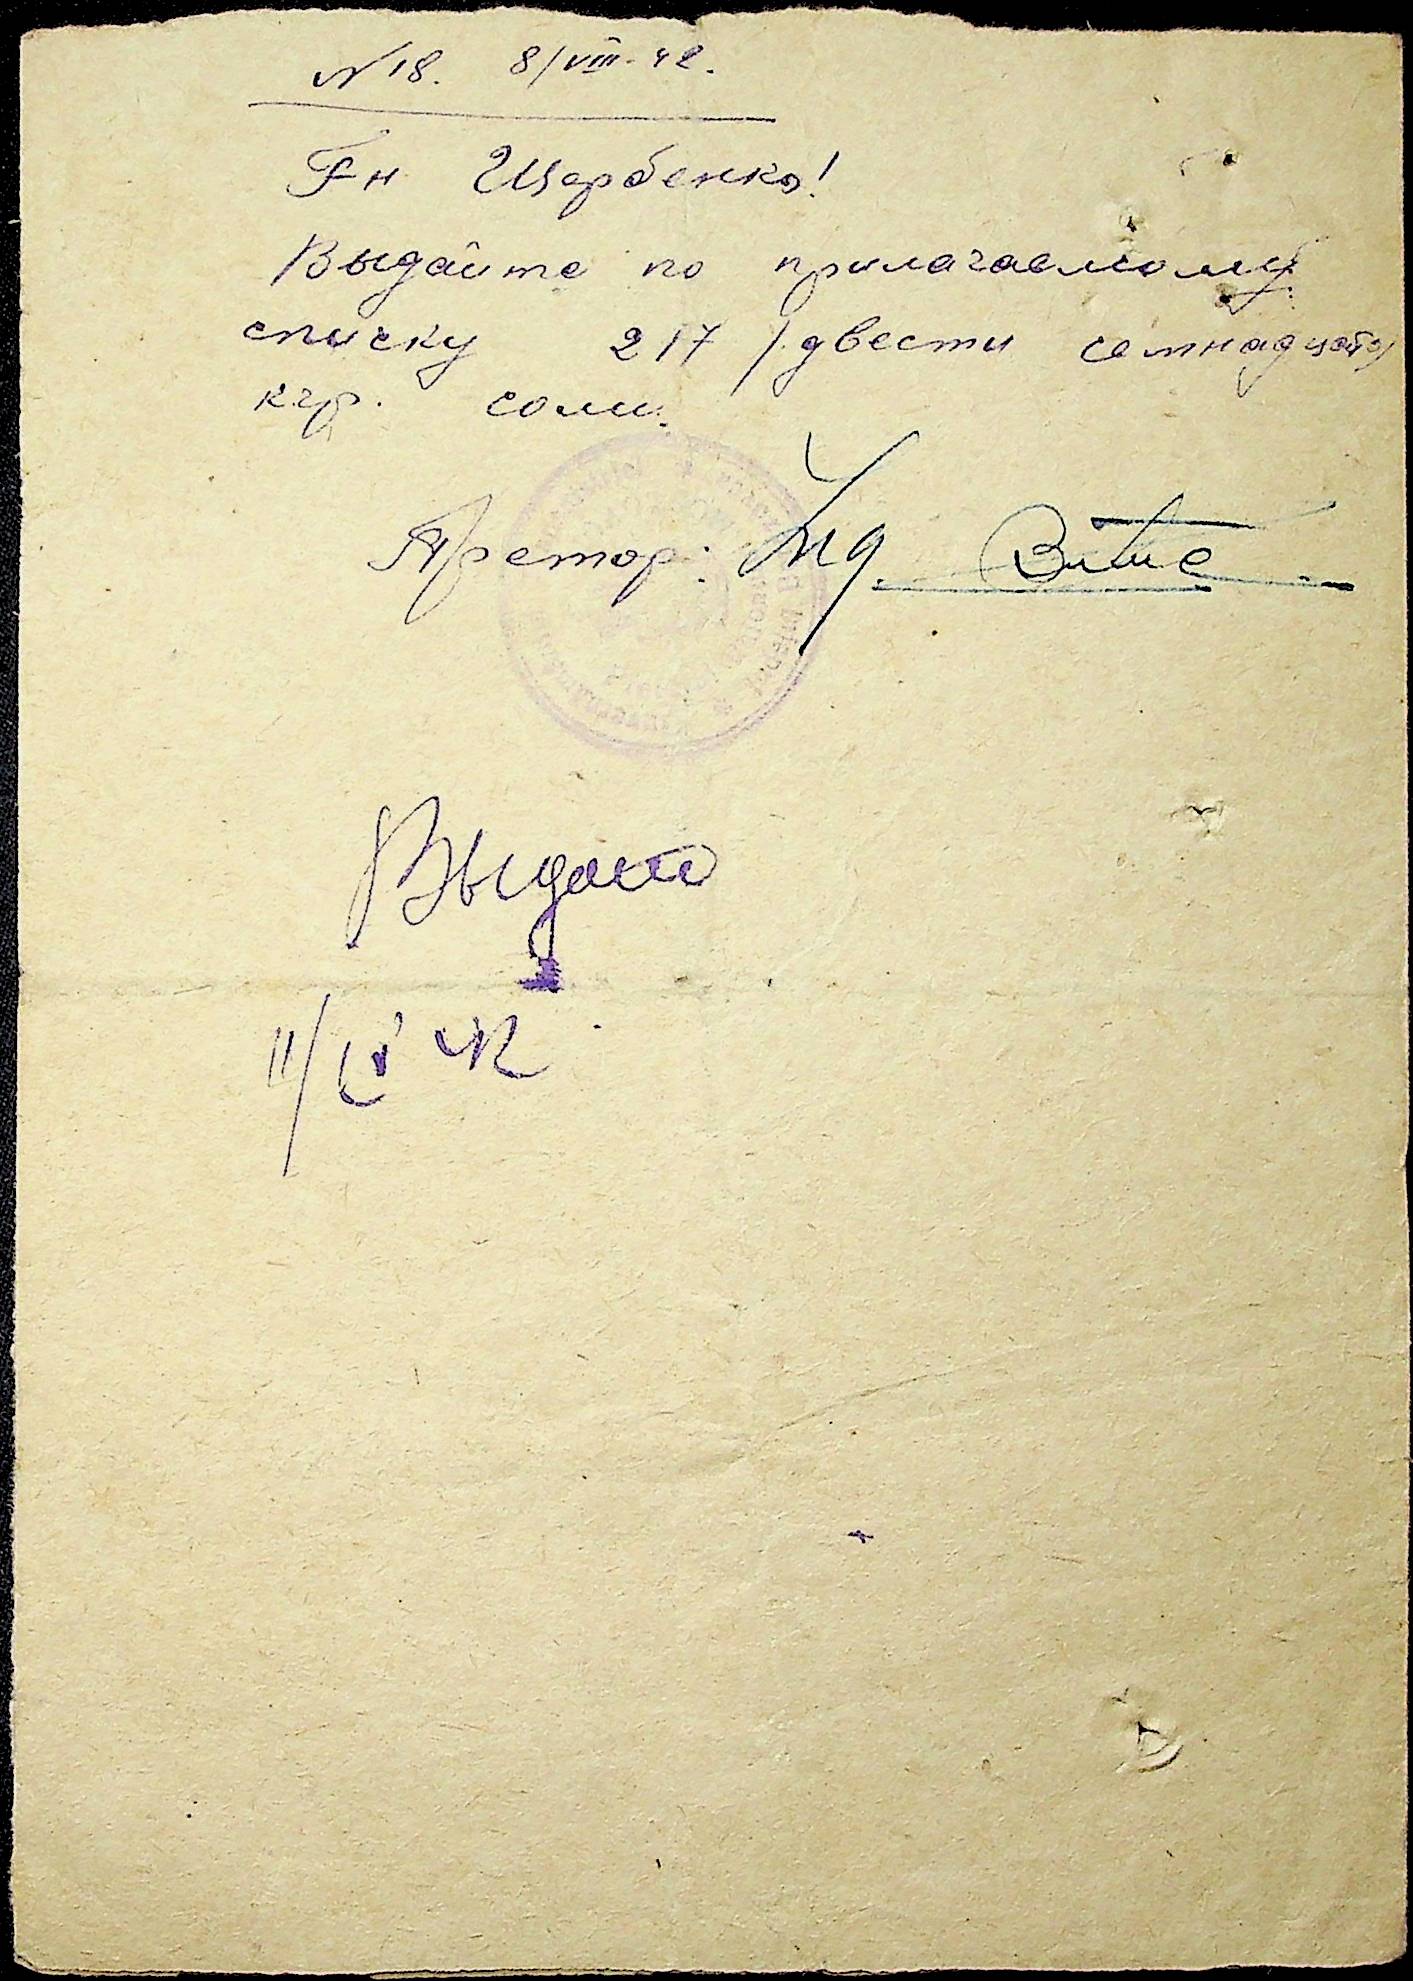 N 18. 8/VIII-42.
Г-н Щербенко!
Выдайте по прилагаемому
списку 217 /двести семнадцать/
кгр. соли.
Претор:
Выдать